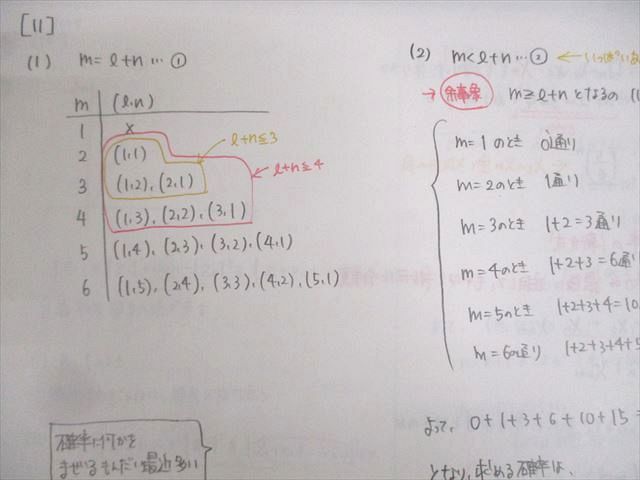 [11]
(1) m=l+n…①
m (l,n)
1 ×
2 (1,1)
3 (1,2),(2,1)
4 (1,3),(2,2),(3,1)
5 (1,4),(2,3),(3,2),(4,1)
6 (1,5),(2,4),(3,3),(4,2),(5,1)
l+n≦3
l+n≦4
確率に何かを
まぜるもんだい最近多い
(2) m<l+n…② ← いっぱいいあ
→ 余事象 m≧l+nとなるの
m=1のとき 0通り
m=2のとき 1通り
m=3のとき 1+2=3通り
m=4のとき 1+2+3=6通り
m=5のとき 1+2+3+4=10
m=6の通り 1+2+3+4+5
よって、0+1+3+6+10+15=
となり、求める確率は、